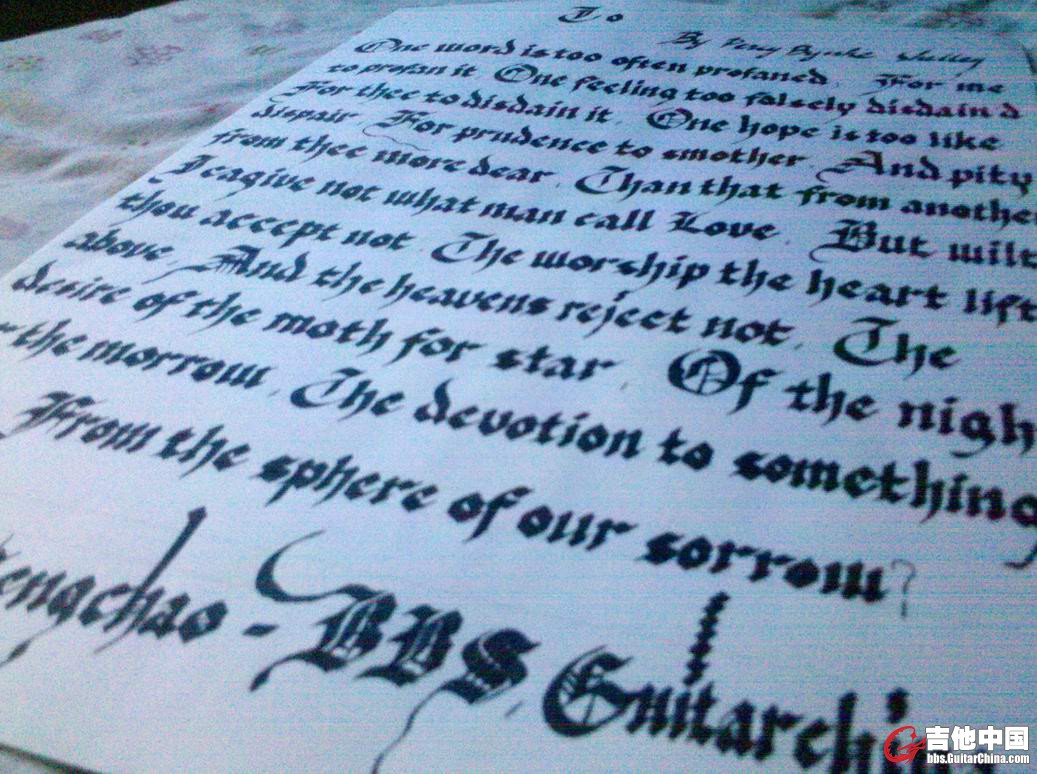 To
By Percy Bysshe Shelley
One word is too often profaned. For me
to profan it. One feeling too falsely disdain'd
For thee to disdain it. One hope is too like
dispair. For prudence to smother. And pity
from thee more dear. Than that from anothe
I cagive not what man call Love. But wilt
thou accept not. The worship the heart lift
above. And the heavens reject not. The
desire of the moth for star. Of the nigh
the morrow. The devotion to something
From the sphere of our sorrow?
engchao - BBS. Guitarchi
吉他中国
bbs.GuitarChina.com